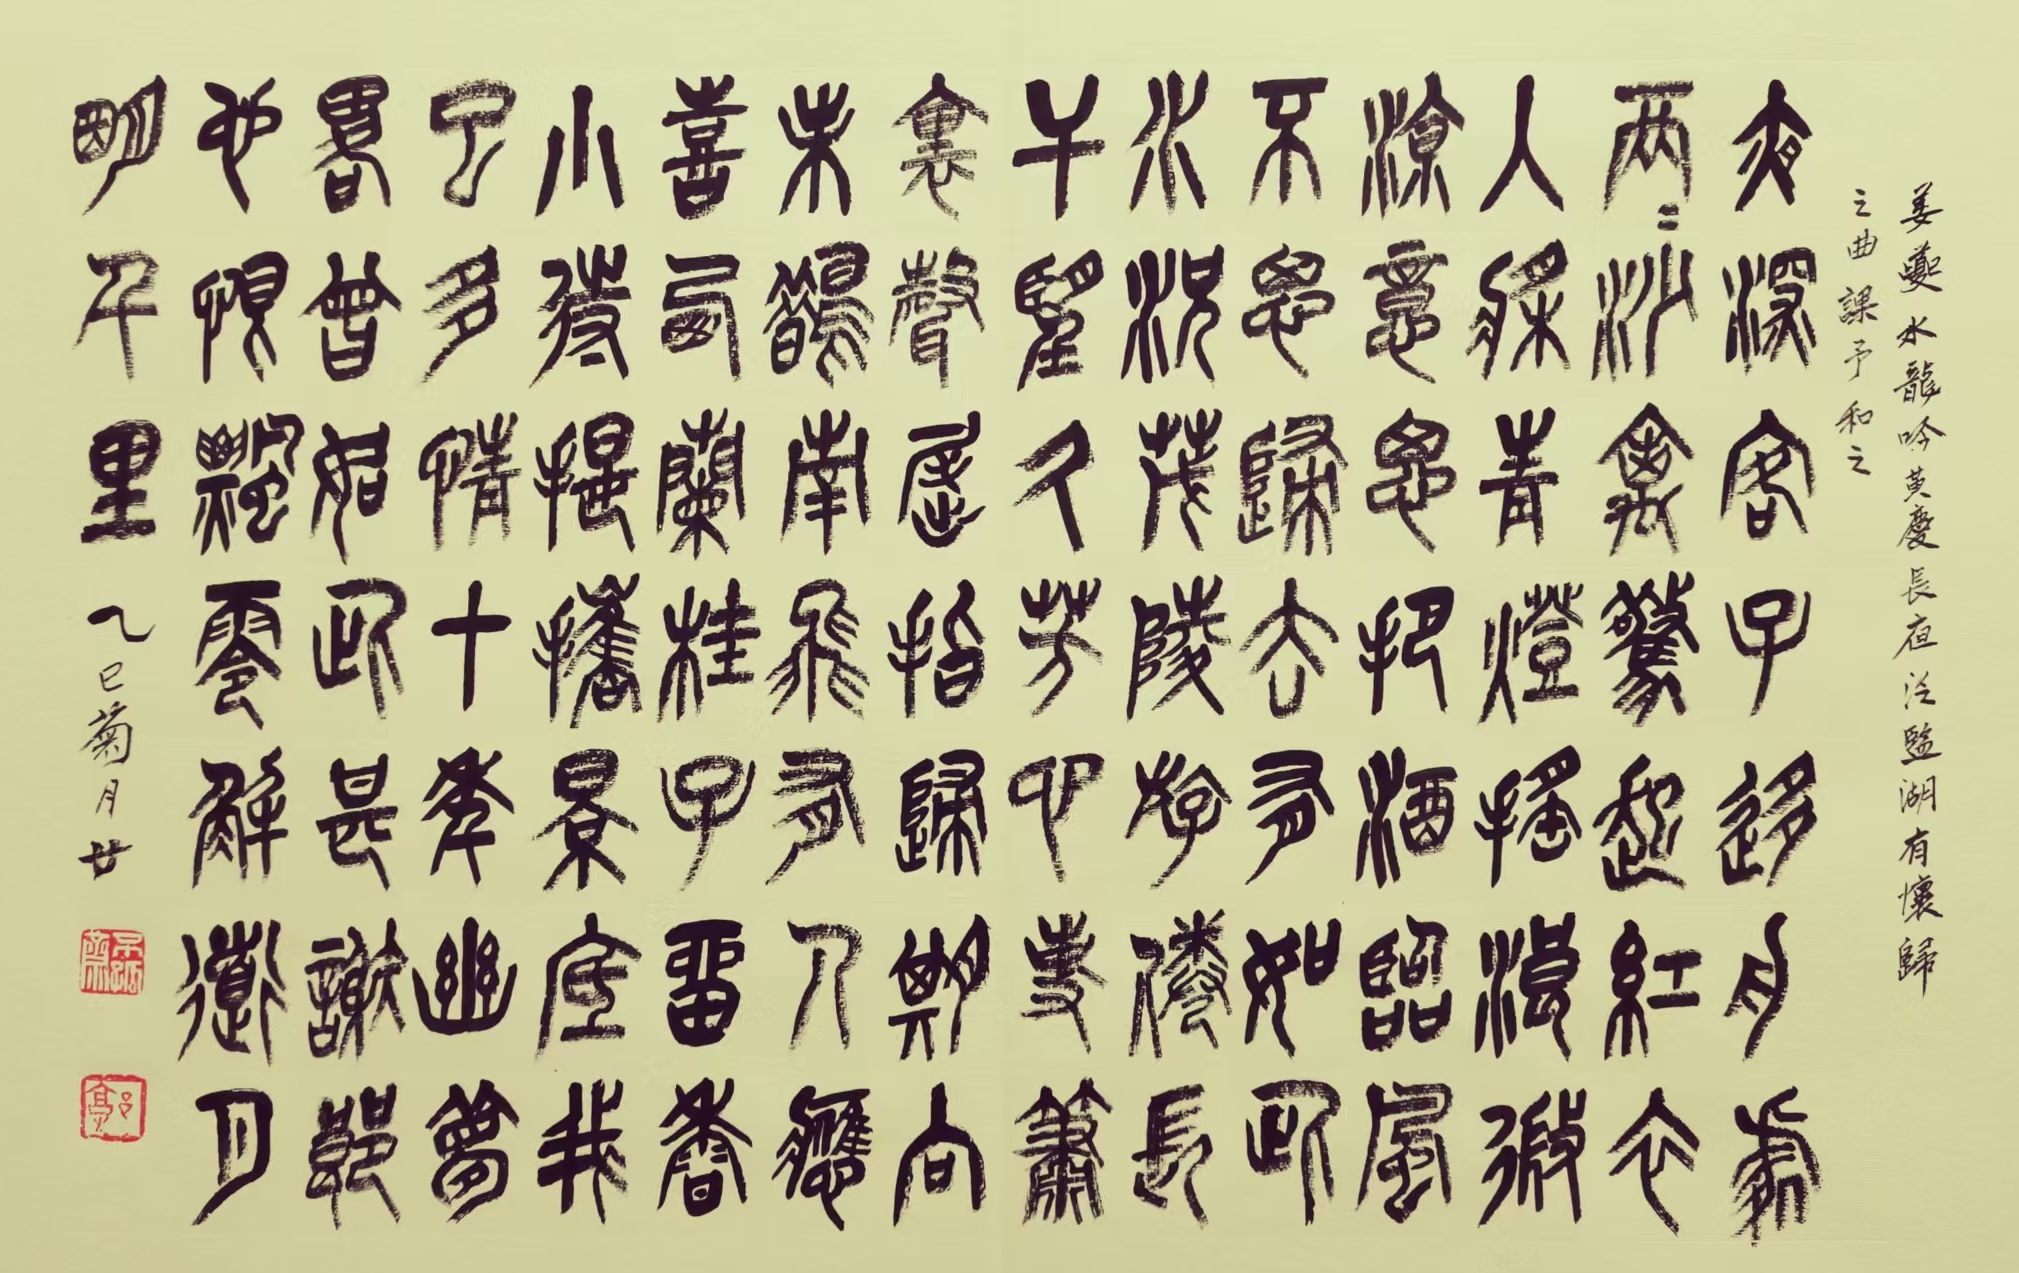 姜夔水龍吟黄慶長夜泛監湖有懷歸
之曲課予和之
夜深客子移舟處
两〻沙禽驚起紅衣
人槳青燈搖浪微
涼意思把酒臨風
不思歸去有如此
水況茂陵游倦長
干望久芳心事簫
裏聲屈指歸期尚
未鵲南飛有人應
喜畫蘭桂子留香
小待提攜景底我
已多情十年幽夢
畧曾如此甚謝郎
也恨飄零解道月
明千里 乙巳菊月廿